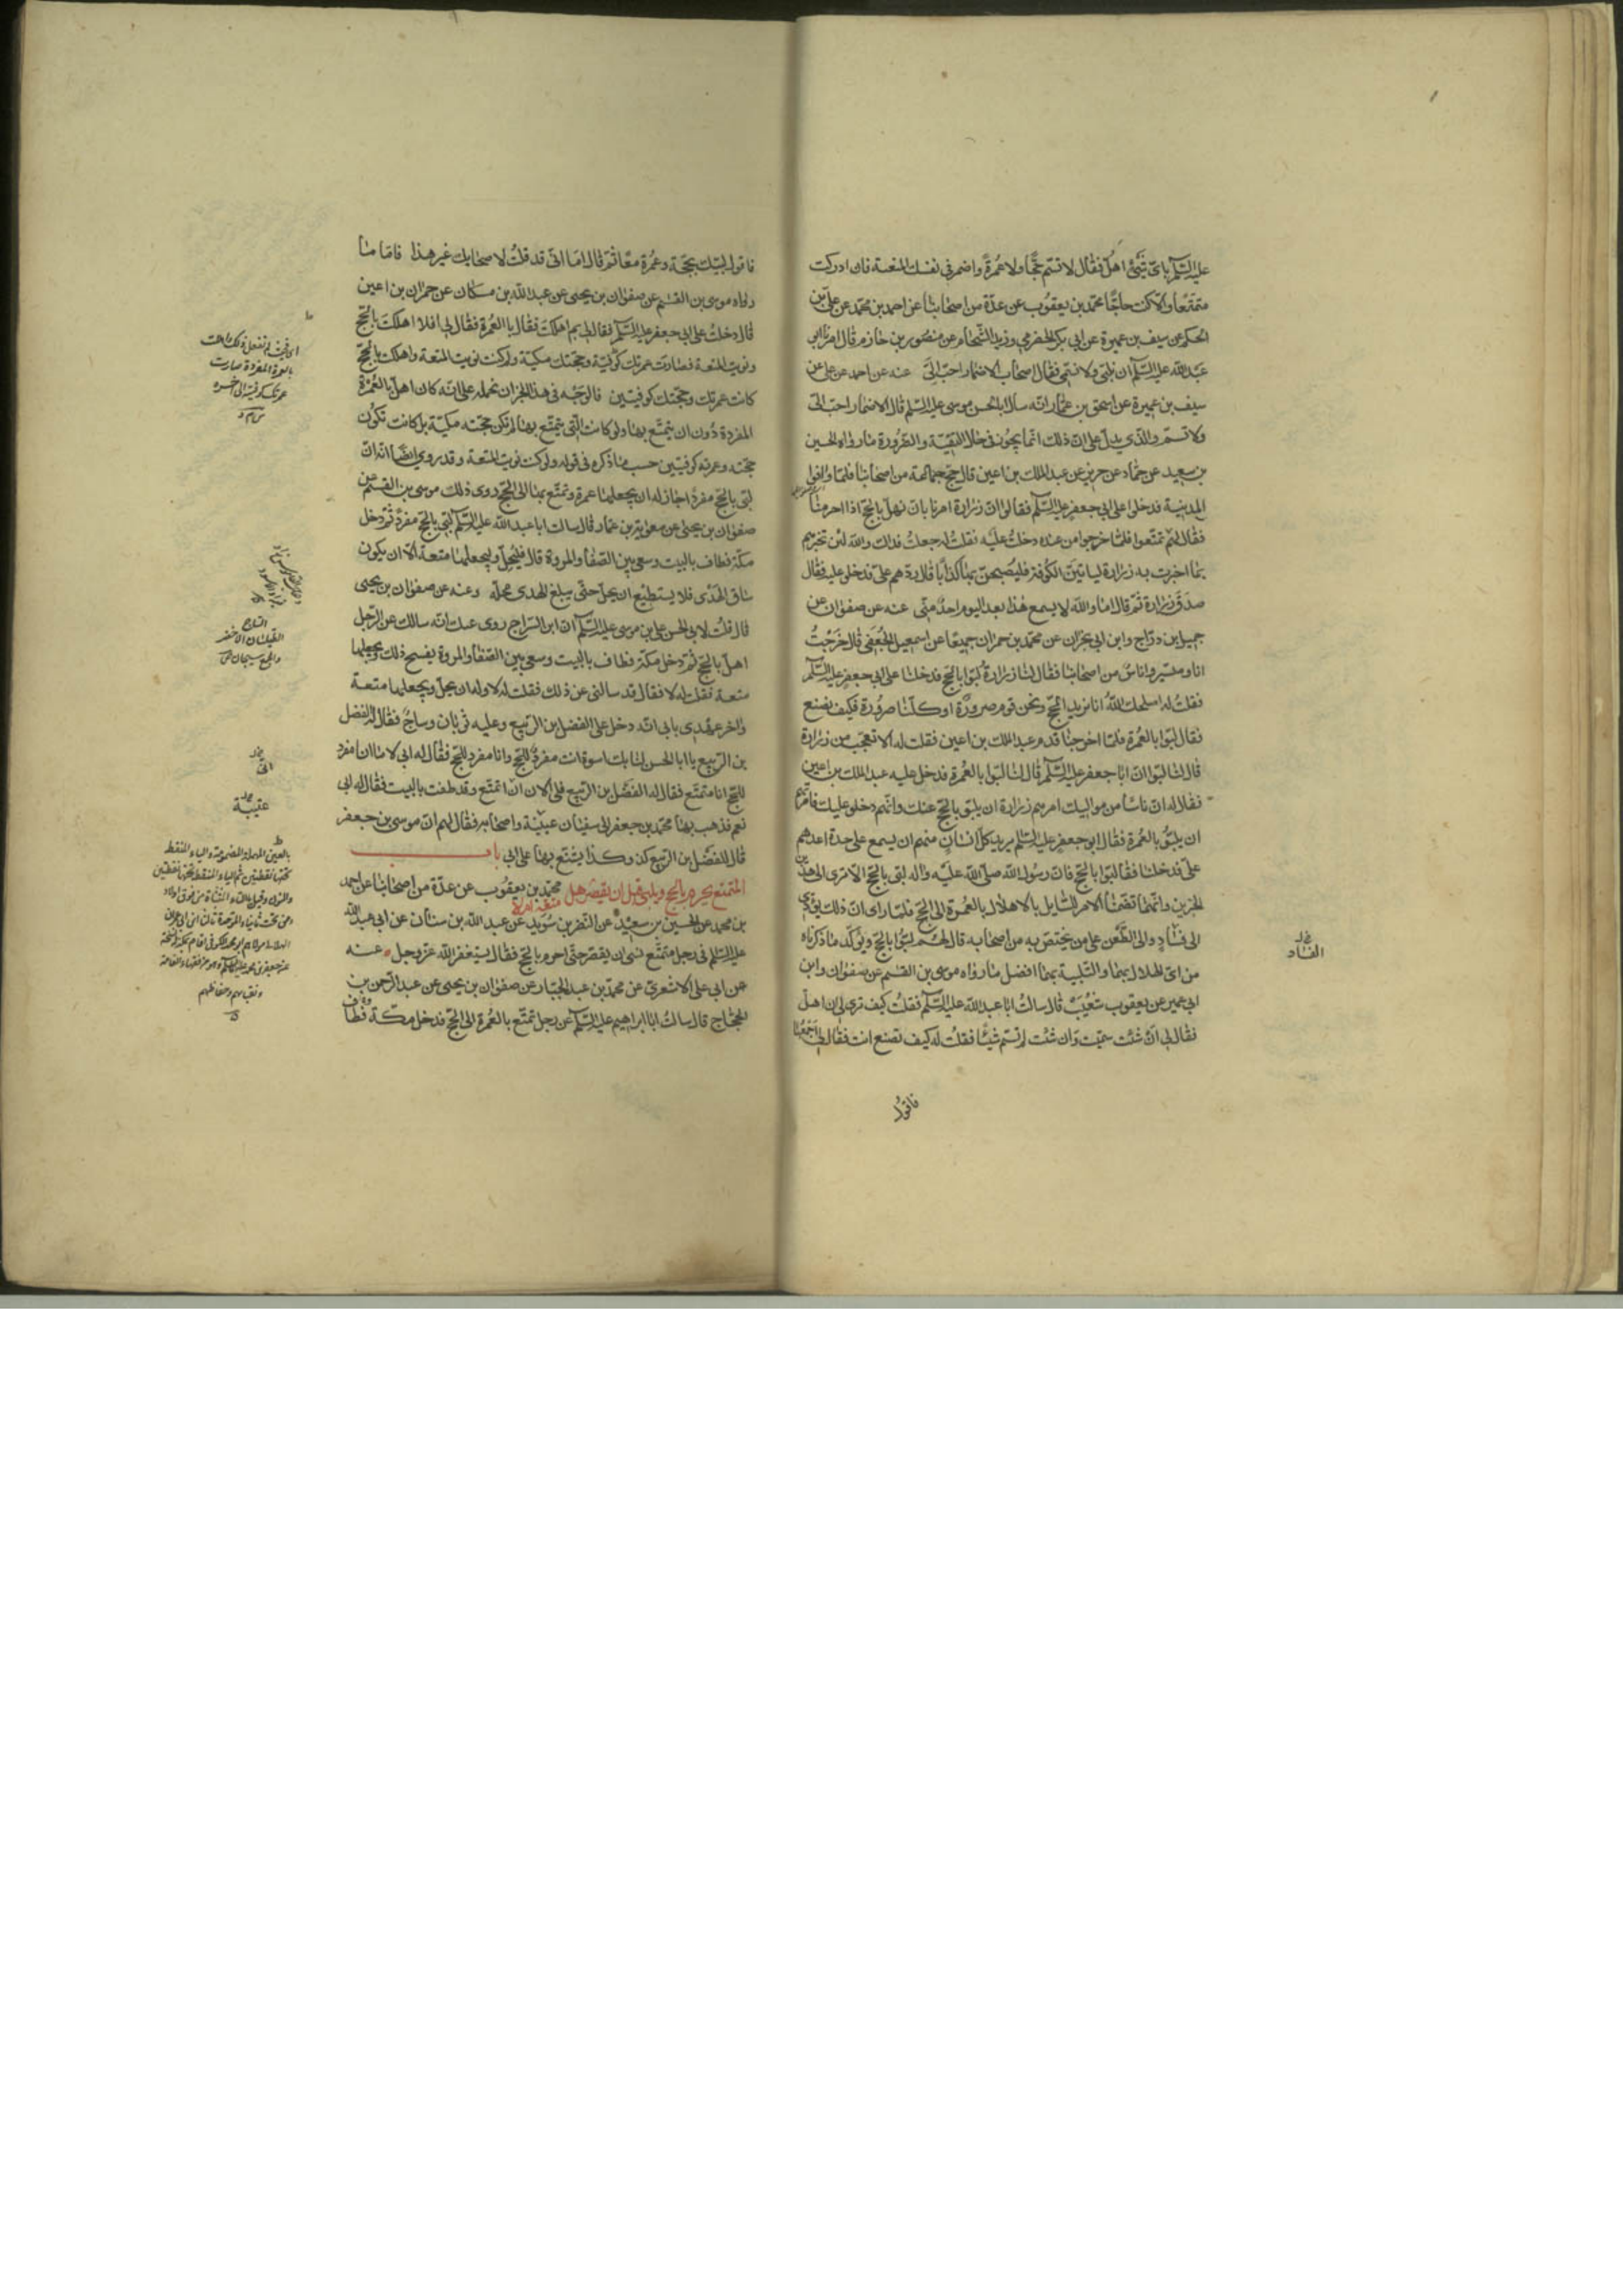 عليه السلم بای شئ اهل فقال لا تسم حجا ولا عمرة واضمر فی نفسك المتعة فان ادركت
متمتعا والا كنت حاجا محمد بن يعقوب عن عدة من اصحابنا عن احمد بن محمد عن علی بن
الحكم عن سيف بن عميرة عن ابی بكر الحضرمی وزيد الشحام عن منصور بن حازم قال امرنا ابو
عبد الله عليه السلم ان نلبی ولا نسمی فقال اصحاب الاضمار احب الی عنه عن احمد عن علی عن
سيف بن عميرة عن اسحق بن عمار انه سال ابا الحسن موسی عليه السلم قال الاضمار احب الی
ولا تسم والذی يدل علی ان ذلك انما يجوز فی خلال التقية والضرورة ما رواه الحسين
بن سعيد عن حماد عن حريز عن عبد الملك بن اعين قال حج جماعة من اصحابنا فلما وافوا
المدينة فدخلوا علی ابی جعفر عليه السلم فقالوا ان زرارة امرنا بان نهل بالحج اذا احرمنا
فقال لهم تمتعوا فلما خرجوا من عنده دخلت عليه فقلت له جعلت فداك والله لئن لم تخبرهم
بما اخبرت به زرارة لياتين الكوفة فليصبحن بها كذابا قال ردهم علی فدخلوا عليه فقال
صدق زرارة ثم قال اما والله لا يسمع هذا بعد اليوم احد منی عنه عن صفوان عن
جميل بن دراج وابن ابی نجران عن محمد بن حمران جميعا عن اسمعيل الجعفی قال خرجت
انا وميسر واناس من اصحابنا فقال لنا زرارة لبوا بالحج فدخلنا علی ابی جعفر عليه السلم
فقلت له اصلحك الله انا نريد الحج ونحن قوم صرورة او كلنا صرورة فكيف نصنع
فقال لبوا بالعمرة فلما خرجنا قدم عبد الملك بن اعين فقلت له الا تعجب من زرارة
قال لنا لبوا بالحج وان ابا جعفر عليه السلم قال لنا لبوا بالعمرة فدخل عليه عبد الملك بن اعين
فقال له ان ناسا من مواليك امرهم زرارة ان يلبوا بالحج عنك وانهم دخلوا عليك فامرتهم
ان يلبوا بالعمرة فقال ابو جعفر عليه السلم يريد كل انسان منهم ان يسمع علی حدة اعدهم
علی فدخلنا فقال لبوا بالحج فان رسول الله صلی الله عليه واله لبی بالحج الا تری الی هذين
الخبرين وانهما تضمنا الامر للسايل بالاهلال بالعمرة الی الحج فلما رای ان ذلك يؤدی
الی فساد والی الطعن علی من يختص به من اصحابه قال لهم لبوا بالحج ويؤكد ما ذكرناه
من ان الاهلال بهما والتلبية بهما افضل ما رواه موسی بن القسم عن صفوان وابن
ابی عمير عن يعقوب بن شعيب قال سالت ابا عبد الله عليه السلم فقلت كيف تری لی ان اهل
فقال لی ان شئت سميت وان شئت لم تسم شيئا فقلت له كيف تصنع انت فقال لی اجمعهما
فاقول
فاقول لبيك بحجة وعمرة معا ثم قال اما انی قد قلت لاصحابك غير هذا فاما ما
رواه موسی بن القسم عن صفوان بن يحيی عن عبد الله بن مسكان عن حمران بن اعين
قال دخلت علی ابی جعفر عليه السلم فقال لی بم اهللت فقال بالعمرة فقال لی افلا اهللت بالحج
ونويت المتعة فصارت عمرتك كوفية وحجتك مكية ولو كنت نويت المتعة واهللت بالحج
كانت عمرتك وحجتك كوفيتين فالوجه فی هذا الخبر ان نحمله علی انه كان اهل بالعمرة
المفردة دون ان يتمتع بها ولو كانت التی يتمتع بها لم تكن حجته مكية بل كانت تكون
حجته وعمرته كوفيتين حسب ما ذكره فی قوله ولو كنت نويت المتعة وقد روی ايضا انه ان
لبی بالحج مفردا جاز له ان يجعلها عمرة وتمتع بها الی الحج روی ذلك موسی بن القسم عن
صفوان بن يحيی عن معوية بن عمار قال سالت ابا عبد الله عليه السلم لبی بالحج مفردا ثم دخل
مكة فطاف بالبيت وسعی بين الصفا والمروة قال فليحل وليجعلها متعة الا ان يكون
ساق الهدی فلا يستطيع ان يحل حتی يبلغ الهدی محله وعنه عن صفوان بن يحيی
قال قلت لابی الحسن علی بن موسی عليه السلم ان ابن السراج روی عنك انه سالك عن الرجل
اهل بالحج ثم دخل مكة فطاف بالبيت وسعی بين الصفا والمروة يفسخ ذلك ويجعلها
متعة فقلت له لا فقال قد سالنی عن ذلك فقلت له لا وله ان يحل ويجعلها متعة
واخر عهدی بابی انه دخل علی الفضل بن الربيع وعليه ثوبان وساج فقال له الفضل
بن الربيع يا ابا الحسن لنا بك اسوة انت مفرد للحج وانا مفرد للحج فقال له ابی لا ما انا مفرد
للحج انا متمتع فقال له الفضل بن الربيع فلی الان ان اتمتع وقد طفت بالبيت فقال له ابی
نعم فذهب بها محمد بن جعفر الی سفيان بن عيينة واصحابه فقال لهم ان موسی بن جعفر
قال للفضل بن الربيع كذا وكذا يشنع بها علی ابی باب
المتمتع يحرم بالحج ويلبی قبل ان يقصر هل محمد بن يعقوب عن عدة من اصحابنا عن احمد
بن محمد عن الحسين بن سعيد عن النضر بن سويد عن عبد الله بن سنان عن ابی عبد الله
عليه السلم فی رجل متمتع نسی ان يقصر حتی احرم بالحج فقال يستغفر الله عز وجل عنه
عن ابی علی الاشعری عن محمد بن عبد الجبار عن صفوان بن يحيی عن عبد الرحمن بن
الحجاج قال سالت ابا ابراهيم عليه السلم عن رجل تمتع بالعمرة الی الحج فدخل مكة فطاف
الفساد
عيينة